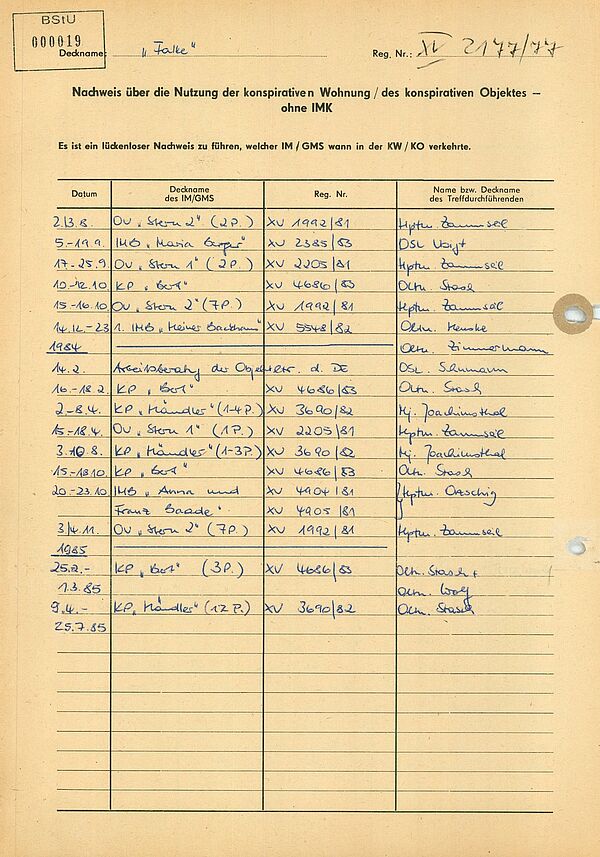 BStU
000019
Deckname: „Falke“ Reg. Nr.: XV 2177/77
Nachweis über die Nutzung der konspirativen Wohnung / des konspirativen Objektes –
ohne IMK
Es ist ein lückenloser Nachweis zu führen, welcher IM / GMS wann in der KW / KO verkehrte.
Datum Deckname des IM/GMS Reg. Nr. Name bzw. Deckname des Treffdurchführenden
2./3.8. OV „Stern 2“ (2P.) XV 1992/81 Hptm.
5.-19.9. IMB „Maria Berger“ XV 2385/83 OSL Voigt
17.-25.9. OV „Stern 1“ (2P.) XV 2205/81 Hptm.
10.-12.10. KP „Bert“ XV 4686/83 Oltn. Stasch
15.-16.10. OV „Stern 2“ (7P.) XV 1992/81 Hptm.
14.12.-23. IMB XV 5548/82 Oltn.
1984 Oltn. Zimmermann
14.2. Arbeitsberatg der d. DE OSL. Schumann
16.-18.2. KP „Bert“ XV 4686/83 Oltn. Stasch
2.-8.4. KP „Händler“ (1-4P.) XV 3690/82 Mj. Joachimsthal
15.-18.4. OV „Stern 1“ (1P.) XV 2205/81 Hptm.
KP „Händler“ (1-3P.) XV 3690/82 Mj. Joachimsthal
15.-18.10. KP „Bert“ XV 4686/83 Oltn. Stasch
20.-23.10. IMB „Anna und XV 4904/81 Hptm.
Franz Baade“ XV 4905/81
3./4.11. OV „Stern 2“ (7P.) XV 1992/81 Hptm.
1985
25.2.- KP „Bert“ (3P.) XV 4686/83 Oltn. Stasch +
1.3.85 Oltn. Wolf
9.4.- KP „Händler“ (12P.) XV 3690/82 Oltn. Stasch
25.7.85